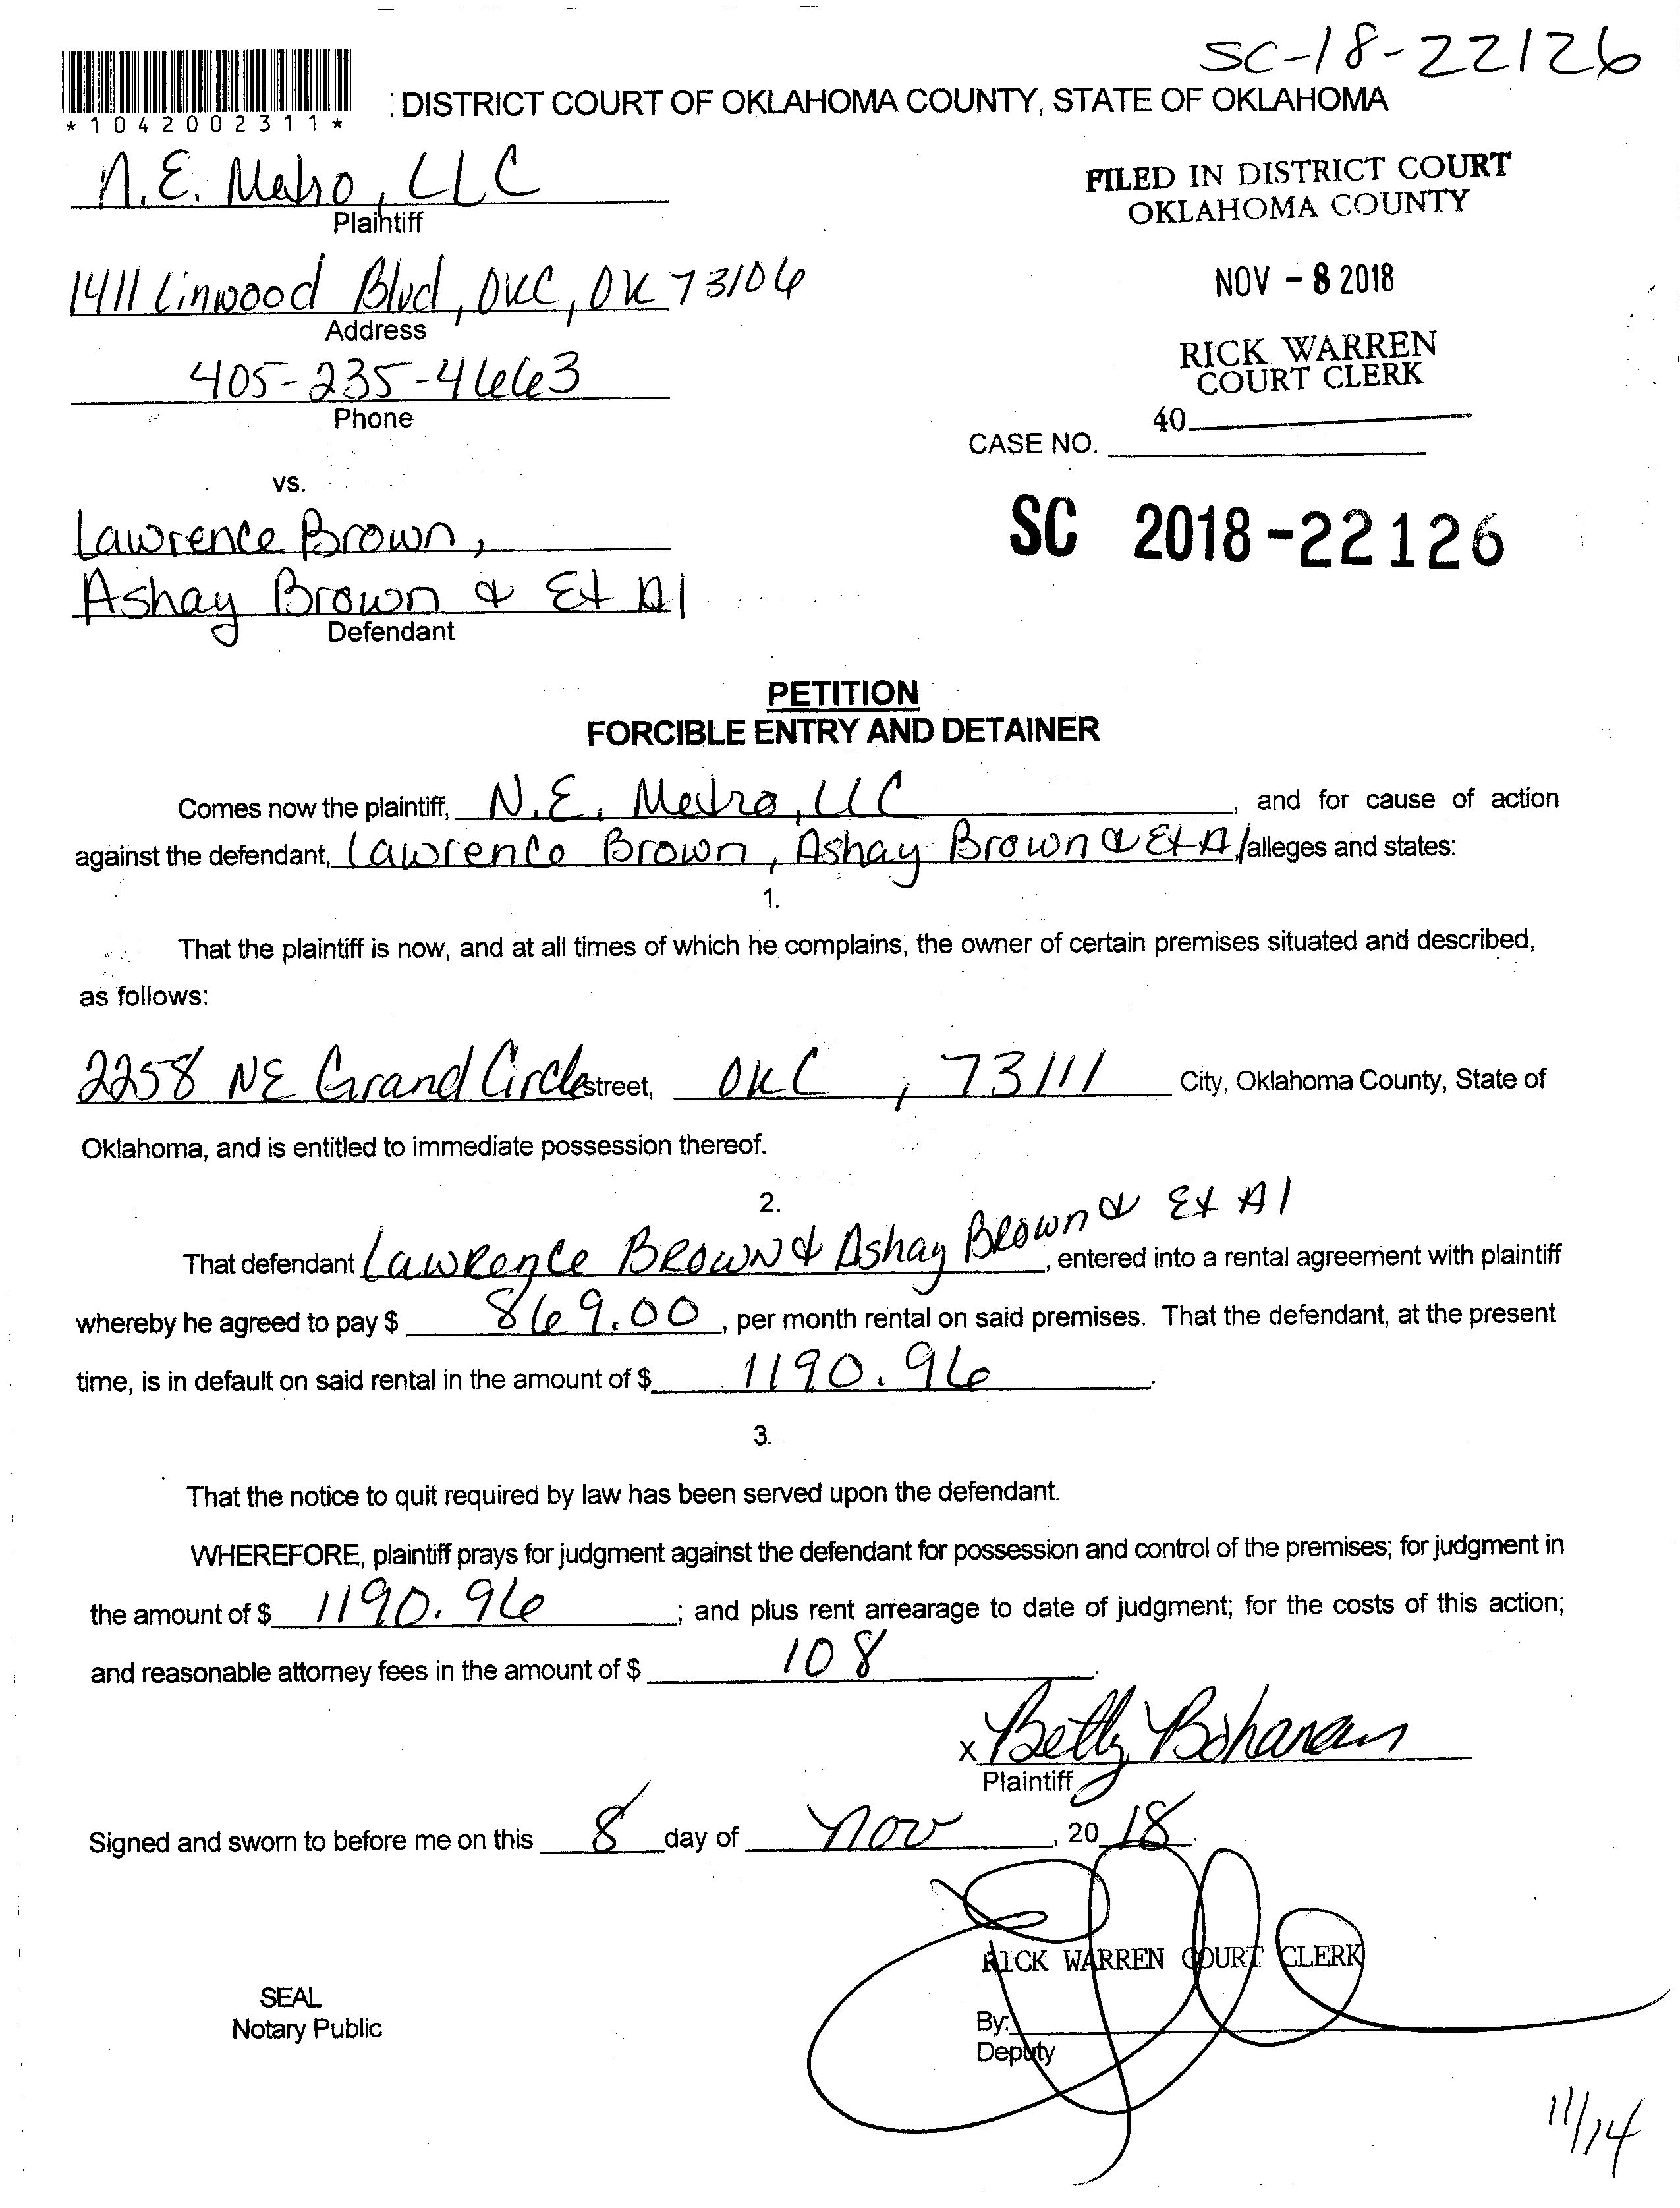 SC-18-22126
*1042002311*
: DISTRICT COURT OF OKLAHOMA COUNTY, STATE OF OKLAHOMA
N.E. Metro, LLC
Plaintiff
FILED IN DISTRICT COURT
OKLAHOMA COUNTY
1411 Linwood Blvd, OKC, OK 73106
Address
NOV - 8 2018
405-235-4663
Phone
RICK WARREN
COURT CLERK
40
CASE NO.
vs.
SC 2018-22126
Lawrence Brown,
Ashay Brown & Et Al
Defendant
PETITION
FORCIBLE ENTRY AND DETAINER
Comes now the plaintiff, N.E. Metro, LLC, and for cause of action
against the defendant, Lawrence Brown, Ashay Brown & Et Al alleges and states:
1.
That the plaintiff is now, and at all times of which he complains, the owner of certain premises situated and described,
as follows:
2258 NE Grand Circle street, OKC, 73111 City, Oklahoma County, State of
Oklahoma, and is entitled to immediate possession thereof.
2.
That defendant Lawrence Brown & Ashay Brown & Et Al, entered into a rental agreement with plaintiff
whereby he agreed to pay $ 869.00, per month rental on said premises. That the defendant, at the present
time, is in default on said rental in the amount of $ 1190.96.
3.
That the notice to quit required by law has been served upon the defendant.
WHEREFORE, plaintiff prays for judgment against the defendant for possession and control of the premises; for judgment in
the amount of $ 1190.96; and plus rent arrearage to date of judgment; for the costs of this action;
and reasonable attorney fees in the amount of $ 108.
x Betty Bohanan
Plaintiff
Signed and sworn to before me on this 8 day of Nov, 20 18.
RICK WARREN COURT CLERK
SEAL
Notary Public
By:
Deputy
11/14